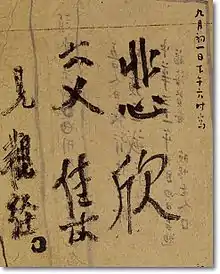 九月初一日下午六时写
悲欣
交集
見觀經